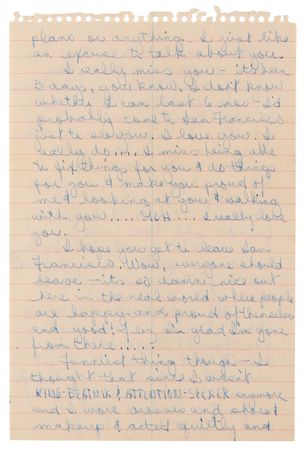 plans or anything. I just like
an excuse to talk about you.
I really miss you - it's been
3 days, you know. I don't know
whether I can last 6 mos - I'd
probably come to San Francisco
just to see you. I love you. I
really do.... I miss being able
to for you & do things
for you & make you proud of
me & looking at you & walking
with you.... I really love
you.
I hope you get to leave San
Francisco. Wow, everyone should
leave - it's so damn nice out
here in the real world where people
are happier and proud of themselves
and good! Yes I'm glad I'm gone
from there....?
Funniest thing though - I
thought that since I wasn't
KING-BEATNIK & ATTENTION-SEEKER anymore
and I wore dresses and shoes &
makeup & acted quietly and